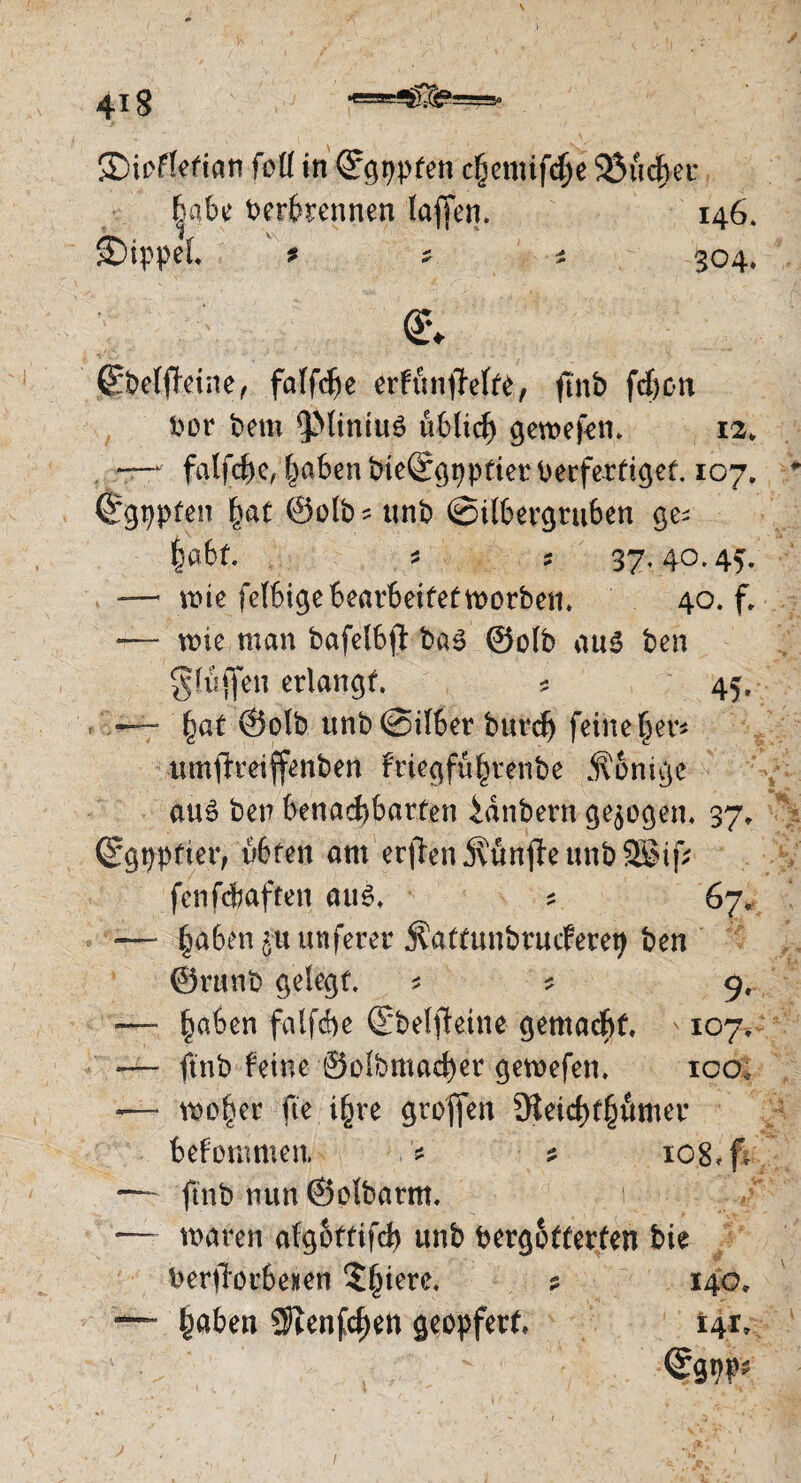 418
Diokletian soll in Egypten chemische Bücher
habe verbrennen lassen. 146.
Dippel. = = = 304.
E.
Edelsteine, falsche erkünstelte, sind schon
vor dem Plinius üblich gewesen. 12.
— falsche, haben die Egyptier verfertiget. 107.
Egypten hat Gold= und Silbergruben ge=
habt. = = 37. 40. 45.
— wie selbige bearbeitet worden. 40. f.
— wie man daselbst das Gold aus den
Flüssen erlangt. = 45.
— hat Gold und Silber durch seine her=
umstreiffenden kriegführende Könige
aus den benachbarten Ländern gezogen. 37.
Egyptier, übten am ersten Künste und Wis=
senschaften aus. = 67.
— haben zu unserer Kattundruckerey den
Grund gelegt. = = 9.
— haben falsche Edelsteine gemacht. 107.
— sind keine Goldmacher gewesen. 100.
— woher sie ihre grossen Reichthümer
bekommen. = = 108. f.
— sind nun Goldarm.
— waren abgöttisch und vergötterten die
verstorbenen Thiere. = 140.
— haben Menschen geopfert. 141.
Egyp=